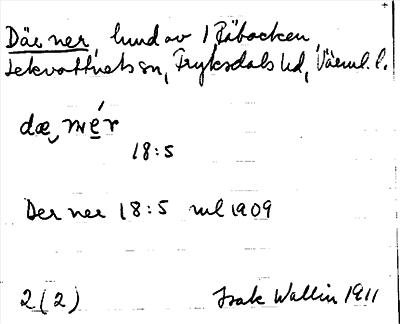 Där ner, hund av 1 Råbacken,
Lekvattnets sn, Fryksdals hd, Värml. l.
dæ, nér
18:5
Der ner 18:5 uul 1909
2(2) Isak Wallin 1911